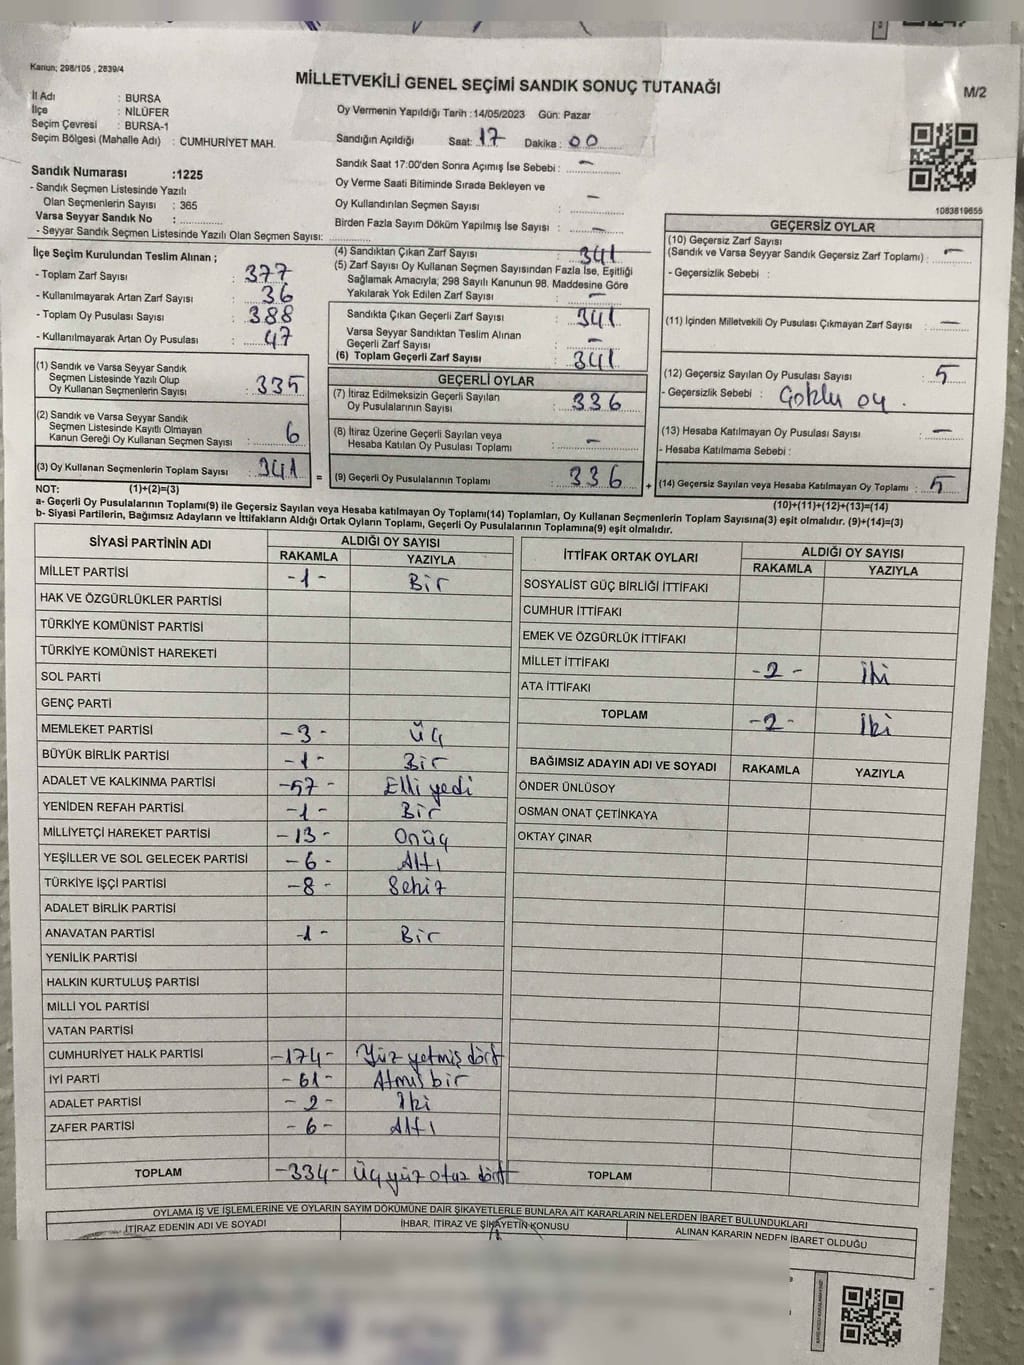 Kanun; 298/105 , 2839/4
MİLLETVEKİLİ GENEL SEÇİMİ SANDIK SONUÇ TUTANAĞI
M/2
İl Adı : BURSA
İlçe : NİLÜFER
Seçim Çevresi : BURSA-1
Seçim Bölgesi (Mahalle Adı) : CUMHURİYET MAH.
Sandık Numarası :1225
- Sandık Seçmen Listesinde Yazılı
Olan Seçmenlerin Sayısı : 365
Varsa Seyyar Sandık No :
- Seyyar Sandık Seçmen Listesinde Yazılı Olan Seçmen Sayısı:
Oy Vermenin Yapıldığı Tarih :14/05/2023 Gün: Pazar
Sandığın Açıldığı Saat: 17 Dakika : 00
Sandık Saat 17:00'den Sonra Açımış İse Sebebi : -
Oy Verme Saati Bitiminde Sırada Bekleyen ve
Oy Kullandırılan Seçmen Sayısı : -
Birden Fazla Sayım Döküm Yapılmış İse Sayısı : -
1083819655
İlçe Seçim Kurulundan Teslim Alınan ;
- Toplam Zarf Sayısı : 377
- Kullanılmayarak Artan Zarf Sayısı : 36
- Toplam Oy Pusulası Sayısı : 388
- Kullanılmayarak Artan Oy Pusulası : 47
(1) Sandık ve Varsa Seyyar Sandık
Seçmen Listesinde Yazılı Olup
Oy Kullanan Seçmenlerin Sayısı : 335
(2) Sandık ve Varsa Seyyar Sandık
Seçmen Listesinde Kayıtlı Olmayan
Kanun Gereği Oy Kullanan Seçmen Sayısı : 6
(3) Oy Kullanan Seçmenlerin Toplam Sayısı : 341
(4) Sandıktan Çıkan Zarf Sayısı : 341
(5) Zarf Sayısı Oy Kullanan Seçmen Sayısından Fazla İse, Eşitliği
Sağlamak Amacıyla; 298 Sayılı Kanunun 98. Maddesine Göre
Yakılarak Yok Edilen Zarf Sayısı : -
Sandıkta Çıkan Geçerli Zarf Sayısı : 341
Varsa Seyyar Sandıktan Teslim Alınan
Geçerli Zarf Sayısı : -
(6) Toplam Geçerli Zarf Sayısı : 341
GEÇERLİ OYLAR
(7) İtiraz Edilmeksizin Geçerli Sayılan
Oy Pusulalarının Sayısı : 336
(8) İtiraz Üzerine Geçerli Sayılan veya
Hesaba Katılan Oy Pusulası Toplamı : -
= (9) Geçerli Oy Pusulalarının Toplamı : 336
GEÇERSİZ OYLAR
(10) Geçersiz Zarf Sayısı
(Sandık ve Varsa Seyyar Sandık Geçersiz Zarf Toplamı) : -
- Geçersizlik Sebebi :
(11) İçinden Milletvekili Oy Pusulası Çıkmayan Zarf Sayısı : -
(12) Geçersiz Sayılan Oy Pusulası Sayısı : 5
- Geçersizlik Sebebi : Çoklu oy .
(13) Hesaba Katılmayan Oy Pusulası Sayısı : -
- Hesaba Katılmama Sebebi :
+ (14) Geçersiz Sayılan veya Hesaba Katılmayan Oy Toplamı : 5
NOT: (1)+(2)=(3)
(10)+(11)+(12)+(13)=(14)
a- Geçerli Oy Pusulalarının Toplamı(9) ile Geçersiz Sayılan veya Hesaba katılmayan Oy Toplamı(14) Toplamları, Oy Kullanan Seçmenlerin Toplam Sayısına(3) eşit olmalıdır. (9)+(14)=(3)
b- Siyasi Partilerin, Bağımsız Adayların ve İttifakların Aldığı Ortak Oyların Toplamı, Geçerli Oy Pusulalarının Toplamına(9) eşit olmalıdır.
SİYASİ PARTİNİN ADI ALDIĞI OY SAYISI
RAKAMLA YAZIYLA
MİLLET PARTİSİ -1- Bir
HAK VE ÖZGÜRLÜKLER PARTİSİ
TÜRKİYE KOMÜNİST PARTİSİ
TÜRKİYE KOMÜNİST HAREKETİ
SOL PARTİ
GENÇ PARTİ
MEMLEKET PARTİSİ -3- Üç
BÜYÜK BİRLİK PARTİSİ -1- Bir
ADALET VE KALKINMA PARTİSİ -57- Elli yedi
YENİDEN REFAH PARTİSİ -1- Bir
MİLLİYETÇİ HAREKET PARTİSİ -13- Onüç
YEŞİLLER VE SOL GELECEK PARTİSİ -6- Altı
TÜRKİYE İŞÇİ PARTİSİ -8- Sekiz
ADALET BİRLİK PARTİSİ
ANAVATAN PARTİSİ -1- Bir
YENİLİK PARTİSİ
HALKIN KURTULUŞ PARTİSİ
MİLLİ YOL PARTİSİ
VATAN PARTİSİ
CUMHURİYET HALK PARTİSİ -174- Yüz yetmiş dört
İYİ PARTİ -61- Atmış bir
ADALET PARTİSİ -2- İki
ZAFER PARTİSİ -6- Altı
TOPLAM -334- Üç yüz otuz dört
İTTİFAK ORTAK OYLARI ALDIĞI OY SAYISI
RAKAMLA YAZIYLA
SOSYALİST GÜÇ BİRLİĞİ İTTİFAKI
CUMHUR İTTİFAKI
EMEK VE ÖZGÜRLÜK İTTİFAKI
MİLLET İTTİFAKI -2- İki
ATA İTTİFAKI
TOPLAM -2- İki
BAĞIMSIZ ADAYIN ADI VE SOYADI RAKAMLA YAZIYLA
ÖNDER ÜNLÜSOY
OSMAN ONAT ÇETİNKAYA
OKTAY ÇINAR
TOPLAM
OYLAMA İŞ VE İŞLEMLERİNE VE OYLARIN SAYIM DÖKÜMÜNE DAİR ŞİKAYETLERLE BUNLARA AİT KARARLARIN NELERDEN İBARET BULUNDUKLARI
İTİRAZ EDENİN ADI VE SOYADI İHBAR, İTİRAZ VE ŞİKAYETİN KONUSU ALINAN KARARIN NEDEN İBARET OLDUĞU